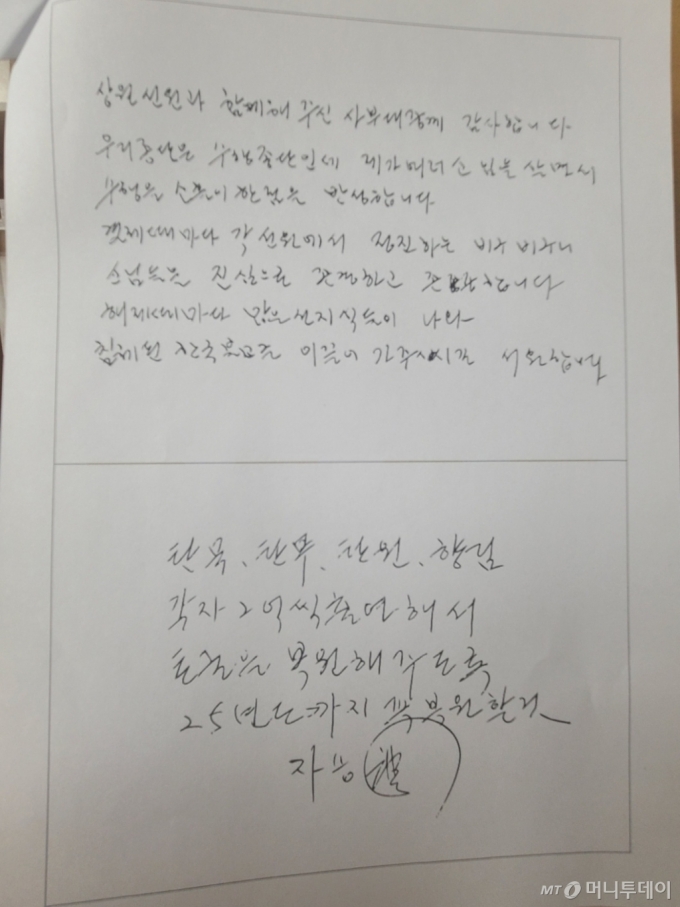 상월선원과 함께해 주신 사부대중께 감사합니다
우리종단은 수행종단인데 제가여러 소임을 살면서
수행을 소홀이한점을 반성합니다
결제때마다 각 선원에서 정진하는 비구 비구니
스님들을 진심으로 존경하고 존중합니다
해제때마다 많은선지식들이 나와
침체된 한국불교를 이끌어 가주시시길 서원합니다
탄묵、탄무、탄원、향림
각자 2억씩출연해서
토굴을 복원해주도록
25년도까지 꼭 복원할것
자승
MT 머니투데이